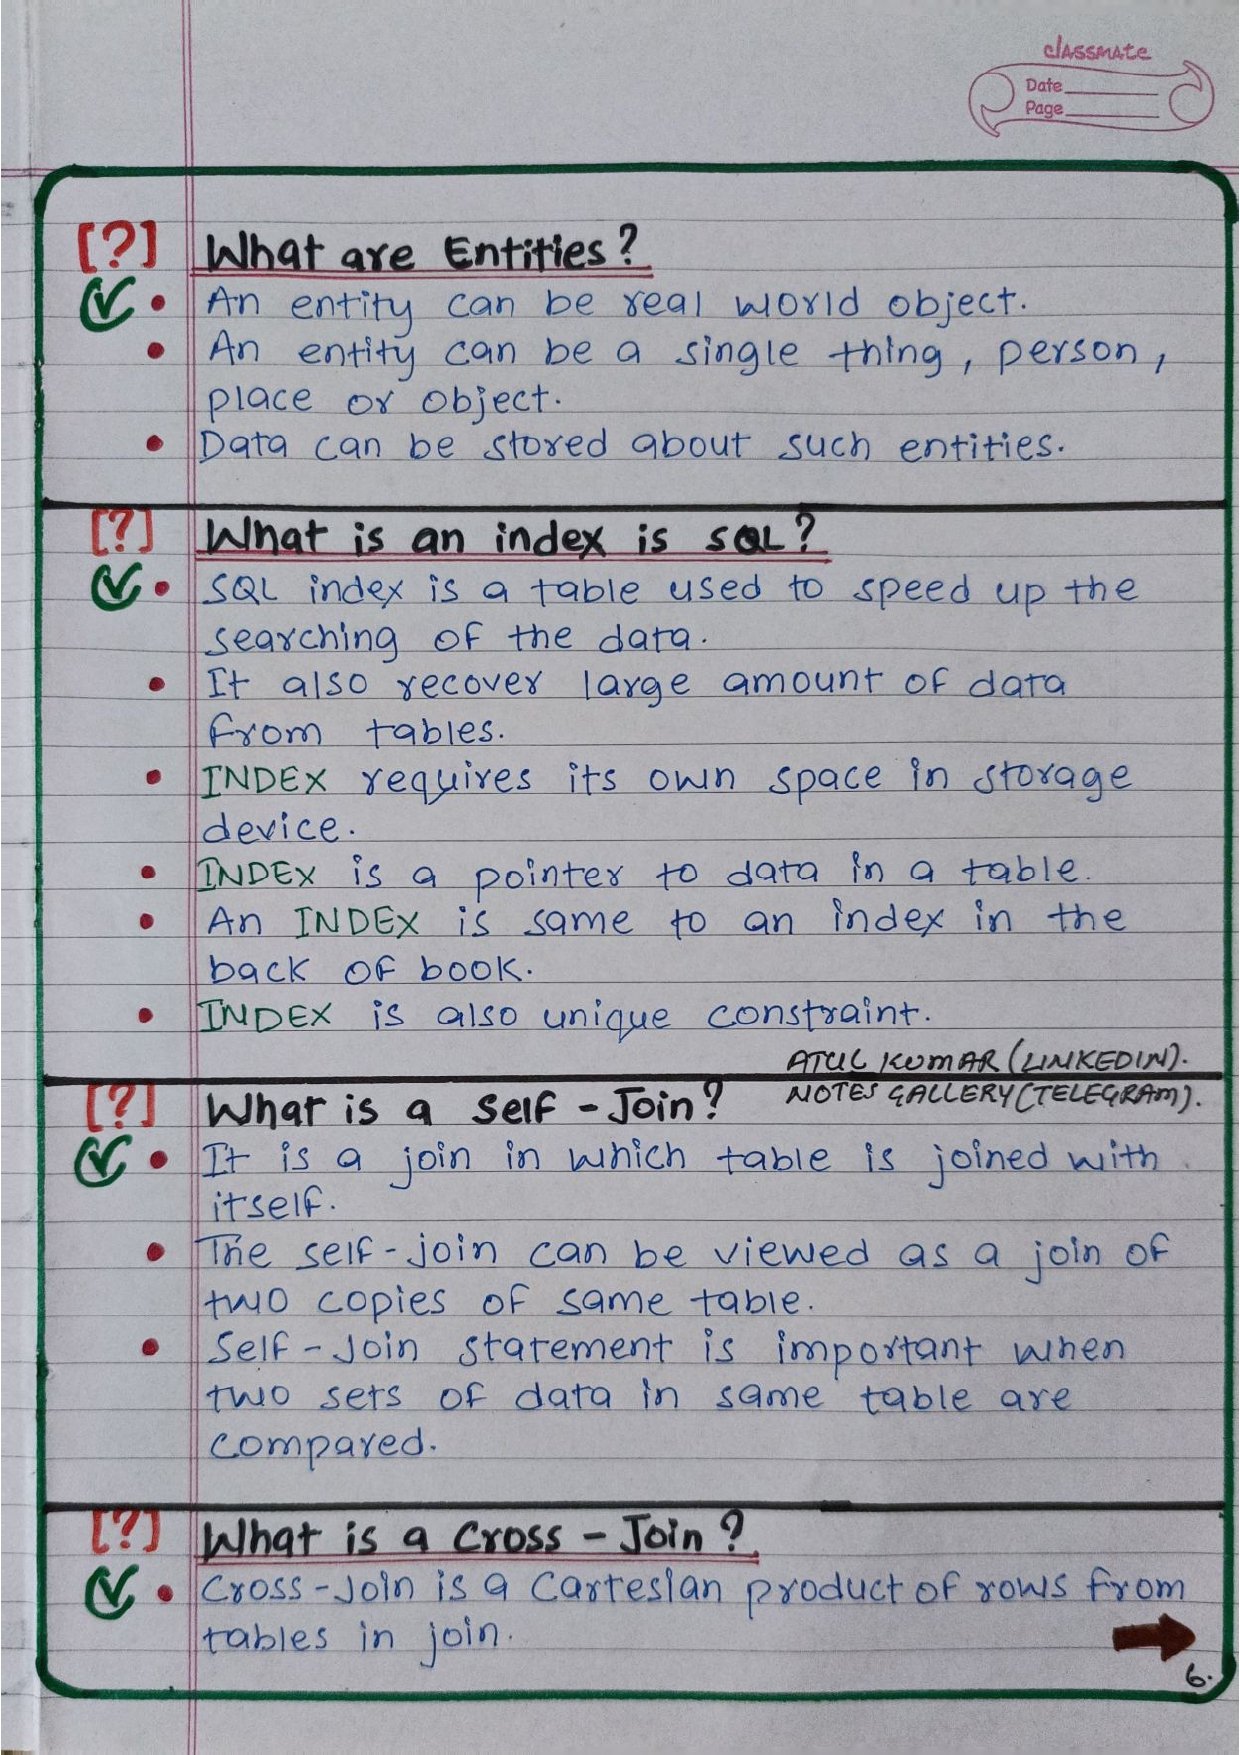 classmate
Date
Page
[?] What are Entities?
• An entity can be real world object.
• An entity can be a single thing, person,
place or object.
• Data can be stored about such entities.
[?] What is an index is SQL?
• SQL index is a table used to speed up the
searching of the data.
• It also recover large amount of data
from tables.
• INDEX requires its own space in storage
device.
• INDEX is a pointer to data in a table.
• An INDEX is same to an index in the
back of book.
• INDEX is also unique constraint.
ATUL KUMAR (LINKEDIN).
NOTES GALLERY (TELEGRAM).
[?] What is a Self-Join?
• It is a join in which table is joined with
itself.
• The self-join can be viewed as a join of
two copies of same table.
• Self-Join statement is important when
two sets of data in same table are
compared.
[?] What is a Cross-Join?
• Cross-Join is a Cartesian product of rows from
tables in join.
6.